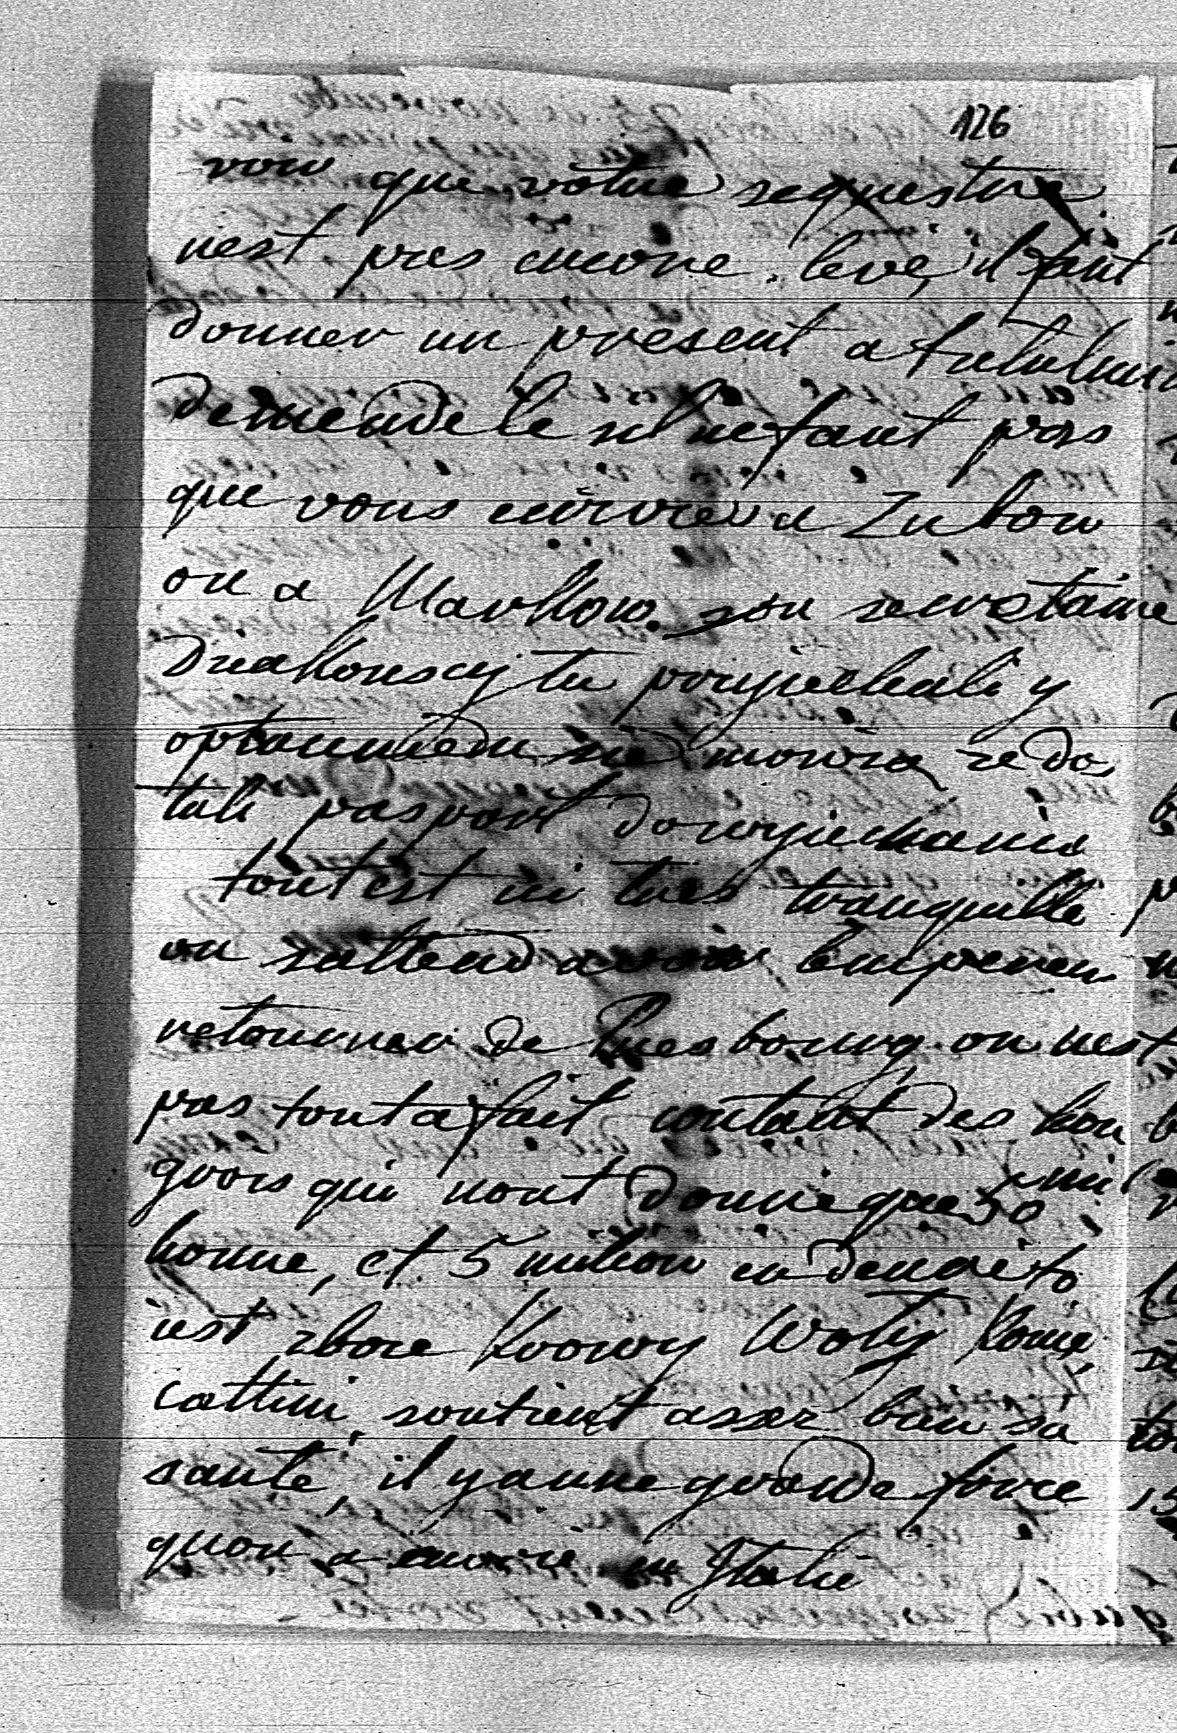 126
voir que votre sequestre
nest pas encore levé, il faut
donner un present a
demende le sil ne faut pas
que vous ecriviez a Zubow
ou a Markow. son secretaire
Diakonscy tu poryiechali y
optaumiedu nie mowia ze dos
tali pasport dowyiechania
tout est ici tres tranquille
on sattend a voir lempereur
retourner de Presbourg on nest
pas tout a fait contant des hon
grois qui nont donne que 50 mil
homme, et 5 milion en denrée to
iest zbore krowy Woly konie
cattini soutient assez bien sa
santé, il y a une grande force
quon a envoié en Italie